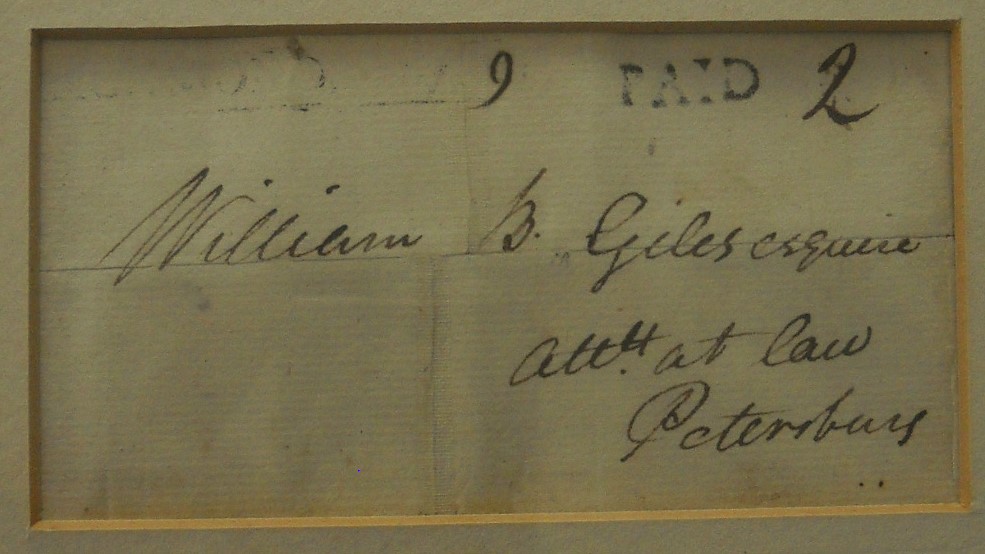 9 PAID 2
William B. Giles esquire
Att.ʸ at law
Petersburg